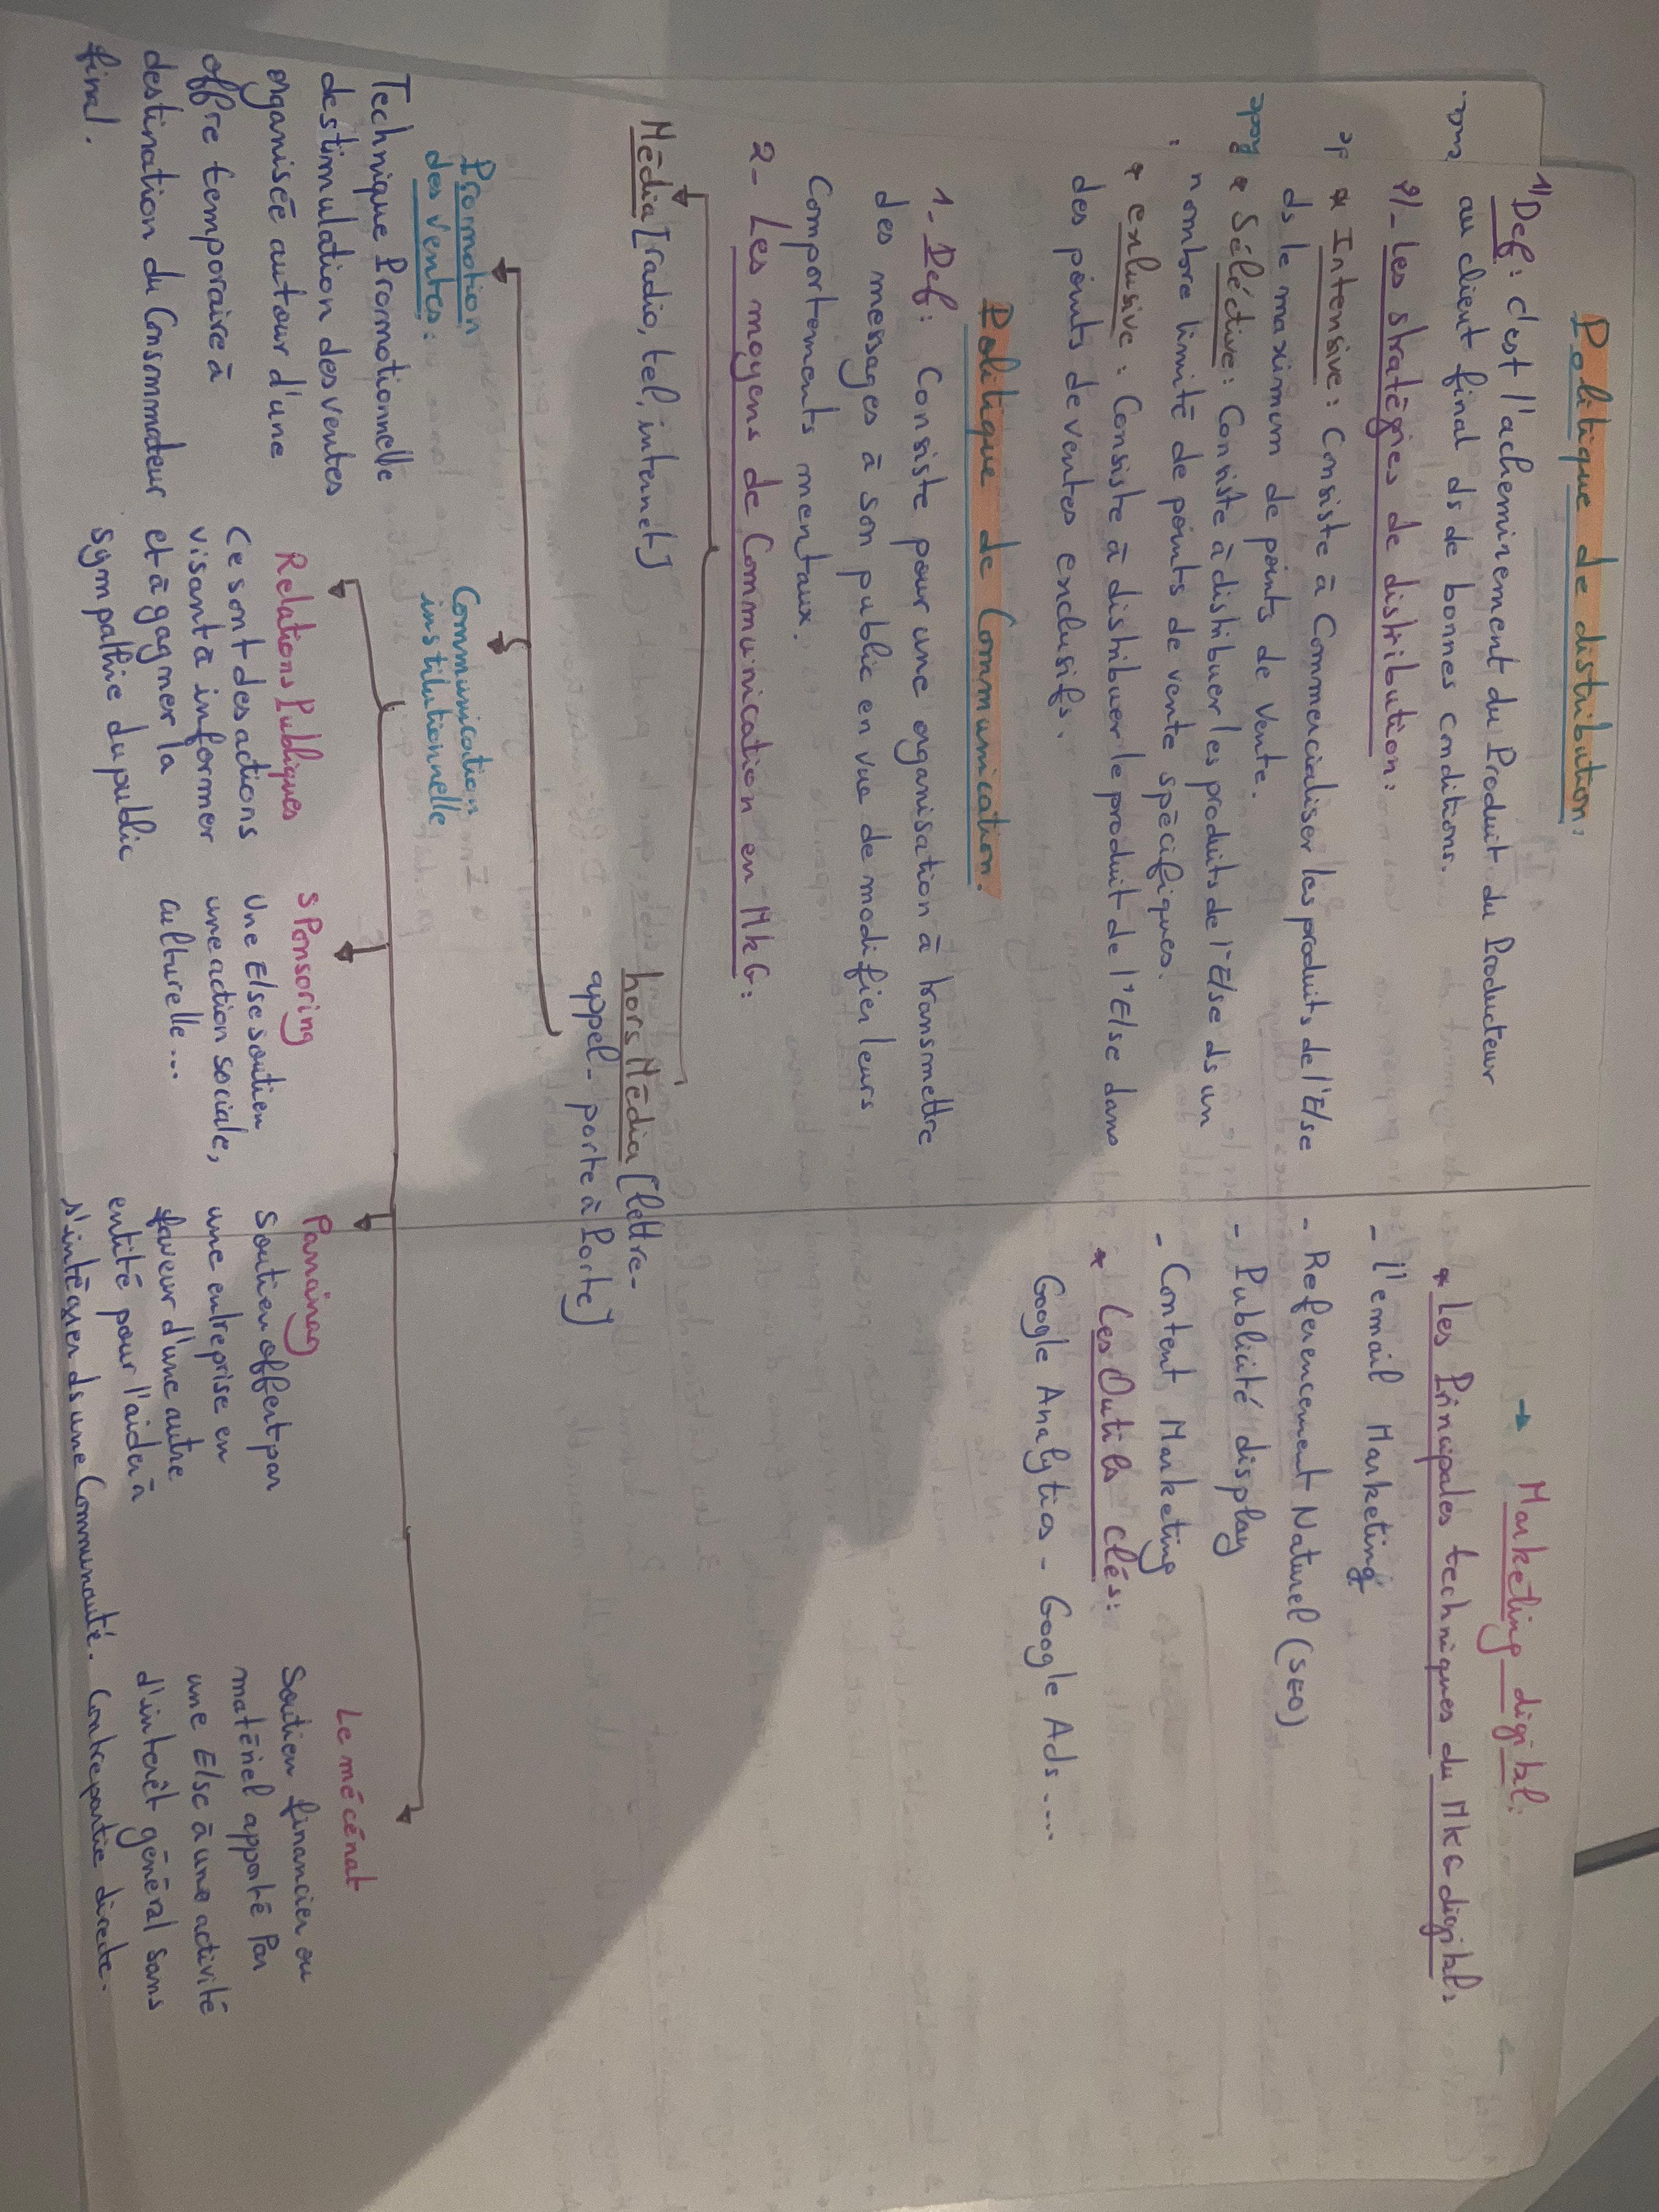 Politique de distribution:
1) Def: c'est l'acheminement du Produit du Producteur
au client final ds de bonnes conditions.
2/- Les stratégies de distribution:
* Intensive: Consiste à Commercialiser les produits de l'E/se
ds le maximum de points de vente.
* Séléctive: Consiste à distribuer les produits de l'E/se ds un
nombre limité de points de vente spécifiques.
* exlusive: Consiste à distribuer le produit de l'E/se dans
des points de ventes exclusifs.
Politique de Communication.
1- Def: Consiste pour une organisation à transmettre
des messages à son public en vue de modifier leurs
Comportements mentaux.
2- Les moyens de Communication en MkG:
Média [radio, tel, internet]
hors Média [lettre-
appel- porte à Porte]
Promotion
des ventes:
Technique Promotionnelle
de stimulation des ventes
organisée autour d'une
offre temporaire à
destination du Consommateur
final.
Communication
institutionnelle
Relations Publiques
Ce sont des actions
visant à informer
et à gagner la
sympathie du public
sPonsoring
Une E/se soutien
une action sociale,
culturelle...
Parrainag
Soutien offert par
une entreprise en
faveur d'une autre
entité pour l'aider à
s'intégrer ds une Communauté.
Le mécénat
Soutien financier ou
matériel apporté Par
une E/se à une activité
d'interêt général sans
Contrepartie directe.
→ Marketing digital:
* Les Principales techniques du MKG digital:
- l'email Marketing
- Referencement Naturel (SEO)
- Publicité display
- Content Marketing
* Les Outils clés:
Google Analytics - Google Ads....